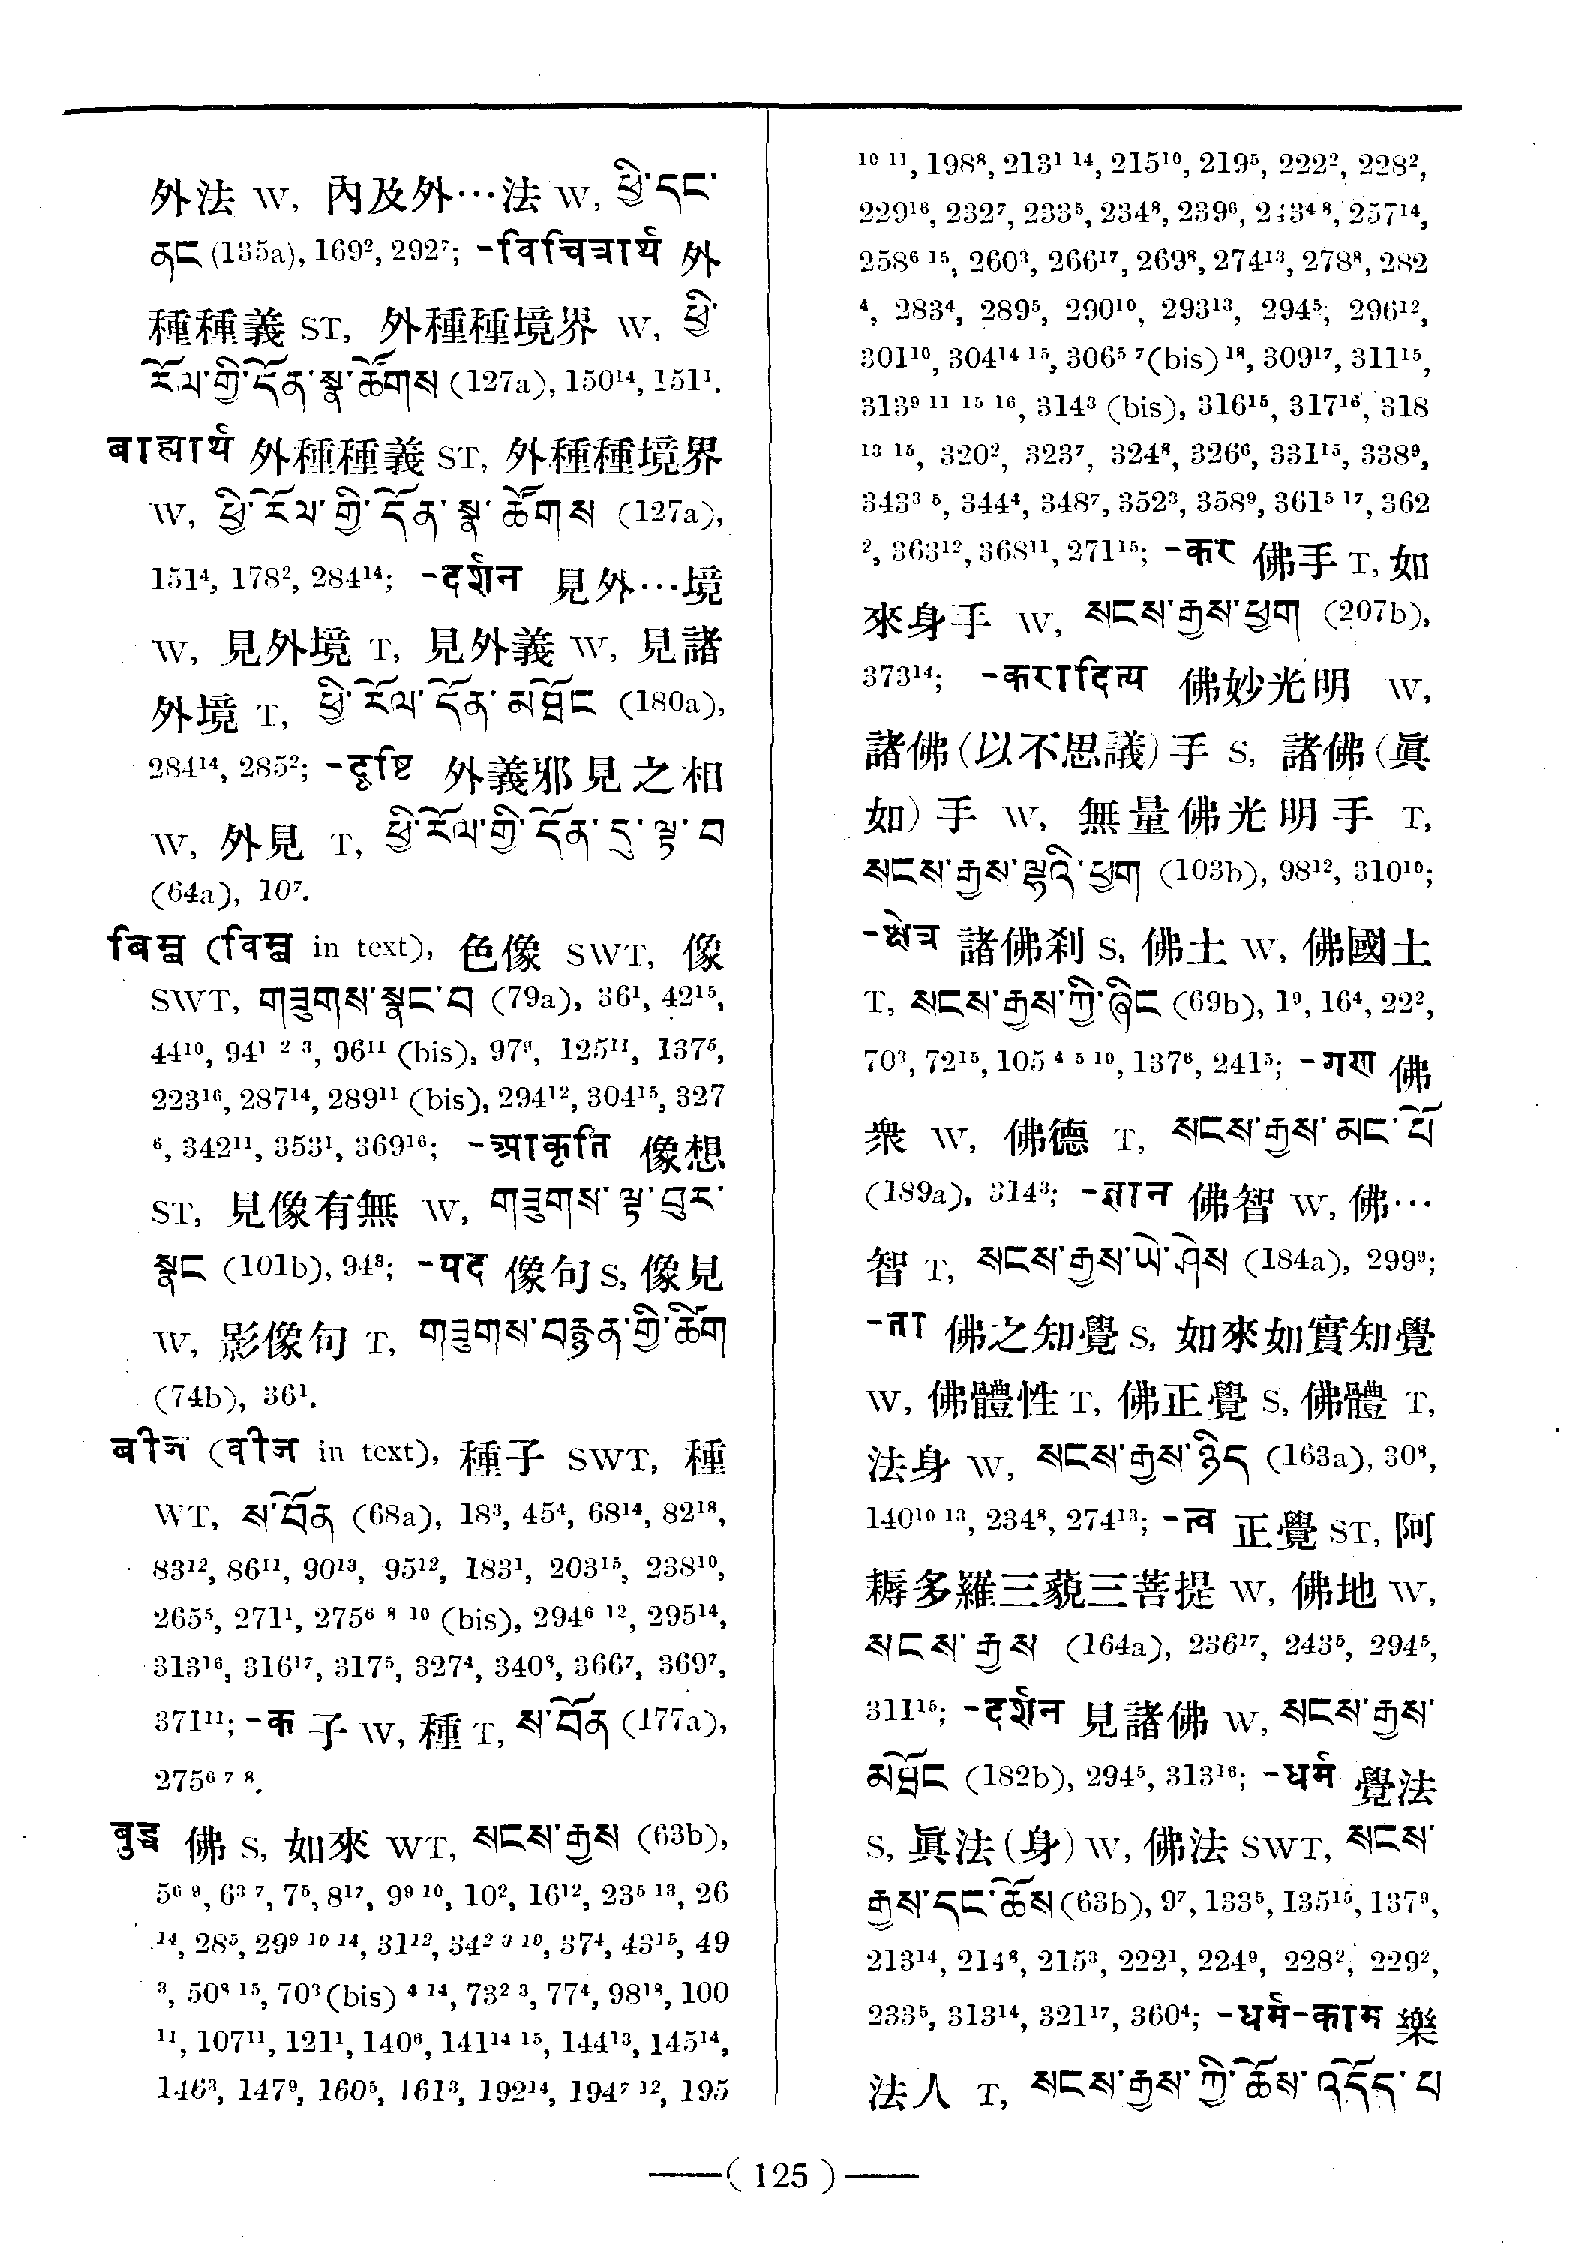 外法 W, 內及外…法 W, ཕྱི་དང་
ནང (135a), 169², 292⁷; -विचित्रार्थ 外
種種義 ST, 外種種境界 W, ཕྱི་
རོལ་གྱི་དོན་སྣ་ཚོགས (127a), 150¹⁴, 151¹.
बाह्यार्थ 外種種義 ST, 外種種境界
W, ཕྱི་རོལ་གྱི་དོན་སྣ་ཚོགས (127a),
151⁴, 178², 284¹⁴; -दर्शन 見外…境
W, 見外境 T, 見外義 W, 見諸
外境 T, ཕྱི་རོལ་དོན་མཐོང (180a),
284¹⁴, 285²; -दृष्टि 外義邪見之相
W, 外見 T, ཕྱི་རོལ་གྱི་དོན་དུ་ལྟ་བ
(64a), 10⁷.
बिम्ब (विम्ब in text), 色像 SWT, 像
SWT, གཟུགས་སྣང་བ (79a), 36¹, 42¹⁵,
44¹⁰, 94¹ ² ³, 96¹¹ (bis), 97⁹, 125¹¹, 137⁵,
223¹⁶, 287¹⁴, 289¹¹ (bis), 294¹², 304¹⁵, 327
⁶, 342¹¹, 353¹, 369¹⁶; -आकृति 像想
ST, 見像有無 W, གཟུགས་ལྟ་བུར་
སྣང (101b), 94³; -पद 像句 S, 像見
W, 影像句 T, གཟུགས་བརྙན་གྱི་ཚིག
(74b), 36¹.
बीज (वीज in text), 種子 SWT, 種
WT, ས་བོན (68a), 18³, 45⁴, 68¹⁴, 82¹⁸,
83¹², 86¹¹, 90¹³, 95¹², 183¹, 203¹⁵, 238¹⁰,
265⁵, 271¹, 275⁶ ⁸ ¹⁰ (bis), 294⁶ ¹², 295¹⁴,
313¹⁶, 316¹⁷, 317⁵, 327⁴, 340⁸, 366⁷, 369⁷,
371¹¹; -क 子 W, 種 T, ས་བོན (177a),
275⁶ ⁷ ⁸.
बुद्ध 佛 S, 如來 WT, སངས་རྒྱས (63b),
5⁶ ⁹, 6³ ⁷, 7⁵, 8¹⁷, 9⁹ ¹⁰, 10², 16¹², 23⁵ ¹³, 26
¹⁴, 28⁵, 29⁹ ¹⁰ ¹⁴, 31¹², 34² ³ ¹⁰, 37⁴, 43¹⁵, 49
³, 50⁸ ¹⁵, 70³ (bis) ⁴ ¹⁴, 73² ³, 77⁴, 98¹⁸, 100
¹¹, 107¹¹, 121¹, 140⁶, 141¹⁴ ¹⁵, 144¹³, 145¹⁴,
146³, 147⁹, 160⁵, 161³, 192¹⁴, 194⁷ ¹², 195
¹⁰ ¹¹, 198⁸, 213¹ ¹⁴, 215¹⁰, 219⁵, 222², 228²,
229¹⁶, 232⁷, 233⁵, 234⁸, 239⁶, 243⁴ ⁸, 257¹⁴,
258⁶ ¹⁵, 260³, 266¹⁷, 269⁸, 274¹³, 278⁸, 282
⁴, 283⁴, 289⁵, 290¹⁰, 293¹³, 294⁵; 296¹²,
301¹⁰, 304¹⁴ ¹⁵, 306⁵ ⁷ (bis) ¹⁸, 309¹⁷, 311¹⁵,
313⁹ ¹¹ ¹⁵ ¹⁶, 314³ (bis), 316¹⁵, 317¹⁶, 318
¹³ ¹⁵, 320², 323⁷, 324⁸, 326⁶, 331¹⁵, 338⁹,
343³ ⁵, 344⁴, 348⁷, 352³, 358⁹, 361⁵ ¹⁷, 362
², 363¹², 368¹¹, 271¹⁵; -कर 佛手 T, 如
來身手 W, སངས་རྒྱས་ཕྱག (207b),
373¹⁴; -करादित्य 佛妙光明 W,
諸佛(以不思議)手 S, 諸佛(眞
如)手 W, 無量佛光明手 T,
སངས་རྒྱས་ལྷའི་ཕྱག (103b), 98¹², 310¹⁰;
-क्षेत्र 諸佛刹 S, 佛土 W, 佛國土
T, སངས་རྒྱས་ཀྱི་ཞིང (69b), 1⁹, 16⁴, 22²,
70³, 72¹⁵, 105 ⁴ ⁵ ¹⁰, 137⁶, 241⁵; -गण 佛
衆 W, 佛德 T, སངས་རྒྱས་མང་པོ
(189a), 314³; -ज्ञान 佛智 W, 佛…
智 T, སངས་རྒྱས་ཡེ་ཤེས (184a), 299⁹;
-ता 佛之知覺 S, 如來如實知覺
W, 佛體性 T, 佛正覺 S, 佛體 T,
法身 W, སངས་རྒྱས་ཉིད (163a), 30⁸,
140¹⁰ ¹³, 234⁸, 274¹³; -त्व 正覺 ST, 阿
耨多羅三藐三菩提 W, 佛地 W,
སངས་རྒྱས (164a), 236¹⁷, 243⁵, 294⁵,
311¹⁵; -दर्शन 見諸佛 W, སངས་རྒྱས་
མཐོང (182b), 294⁵, 313¹⁶; -धर्म 覺法
S, 眞法(身) W, 佛法 SWT, སངས་
རྒྱས་དང་ཆོས (63b), 9⁷, 133⁵, 135¹⁵, 137⁹,
213¹⁴, 214⁸, 215³, 222¹, 224⁹, 228², 229²,
233⁵, 313¹⁴, 321¹⁷, 360⁴; -धर्म-काम 樂
法人 T, སངས་རྒྱས་ཀྱི་ཆོས་འདོད་པ
—( 125 )—